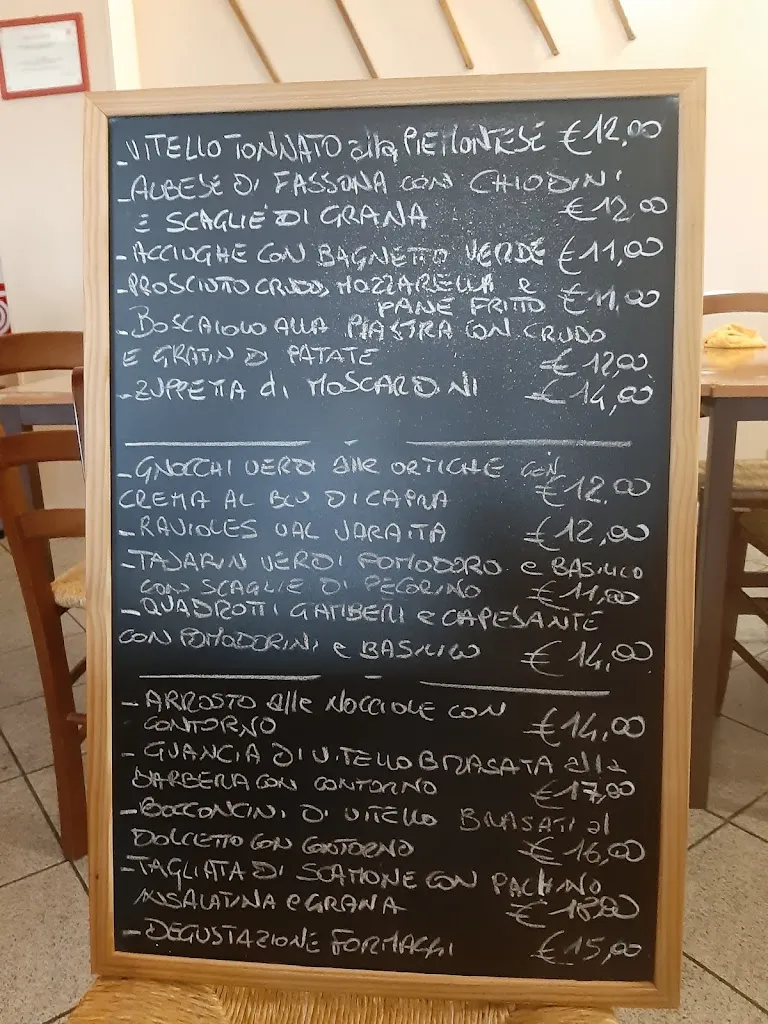 -VITELLO TONNATO alla PIEMONTESE €12,00
-ALBESE DI FASSONA CON CHIODINI
E SCAGLIE DI GRANA €12,00
-ACCIUGHE CON BAGNETTO VERDE €11,00
-PROSCIUTO CRUDO, MOZZARELLA e
PANE FRITTO €11,00
-BOSCAIOLO ALLA PIASTRA CON CRUDO
E GRATIN DI PATATE €12,00
-ZUPPETTA di MOSCARDINI €14,00
-GNOCCHI VERDI alle ORTICHE CON
CREMA AL BLU DI CAPRA €12,00
-RAVIOLES VAL VARAITA €12,00
-TAJARIN VERDI POMODORO e BASILICO
CON SCAGLIE DI PECORINO €11,00
-QUADROTTI GAMBERI e CAPESANTE
CON POMODORINI e BASILICO €14,00
-ARROSTO alle NOCCIOLE CON
CONTORNO €14,00
-GUANCIA DI VITELLO BRASATA alla
BARBERA CON CONTORNO €17,00
-BOCCONCINI DI VITELLO BRASATI al
DOLCETTO CON CONTORNO €16,00
-TAGLIATA DI SCAMONE CON PACHINO
INSALATINA e GRANA €18,00
-DEGUSTAZIONE FORMAGGI €15,00